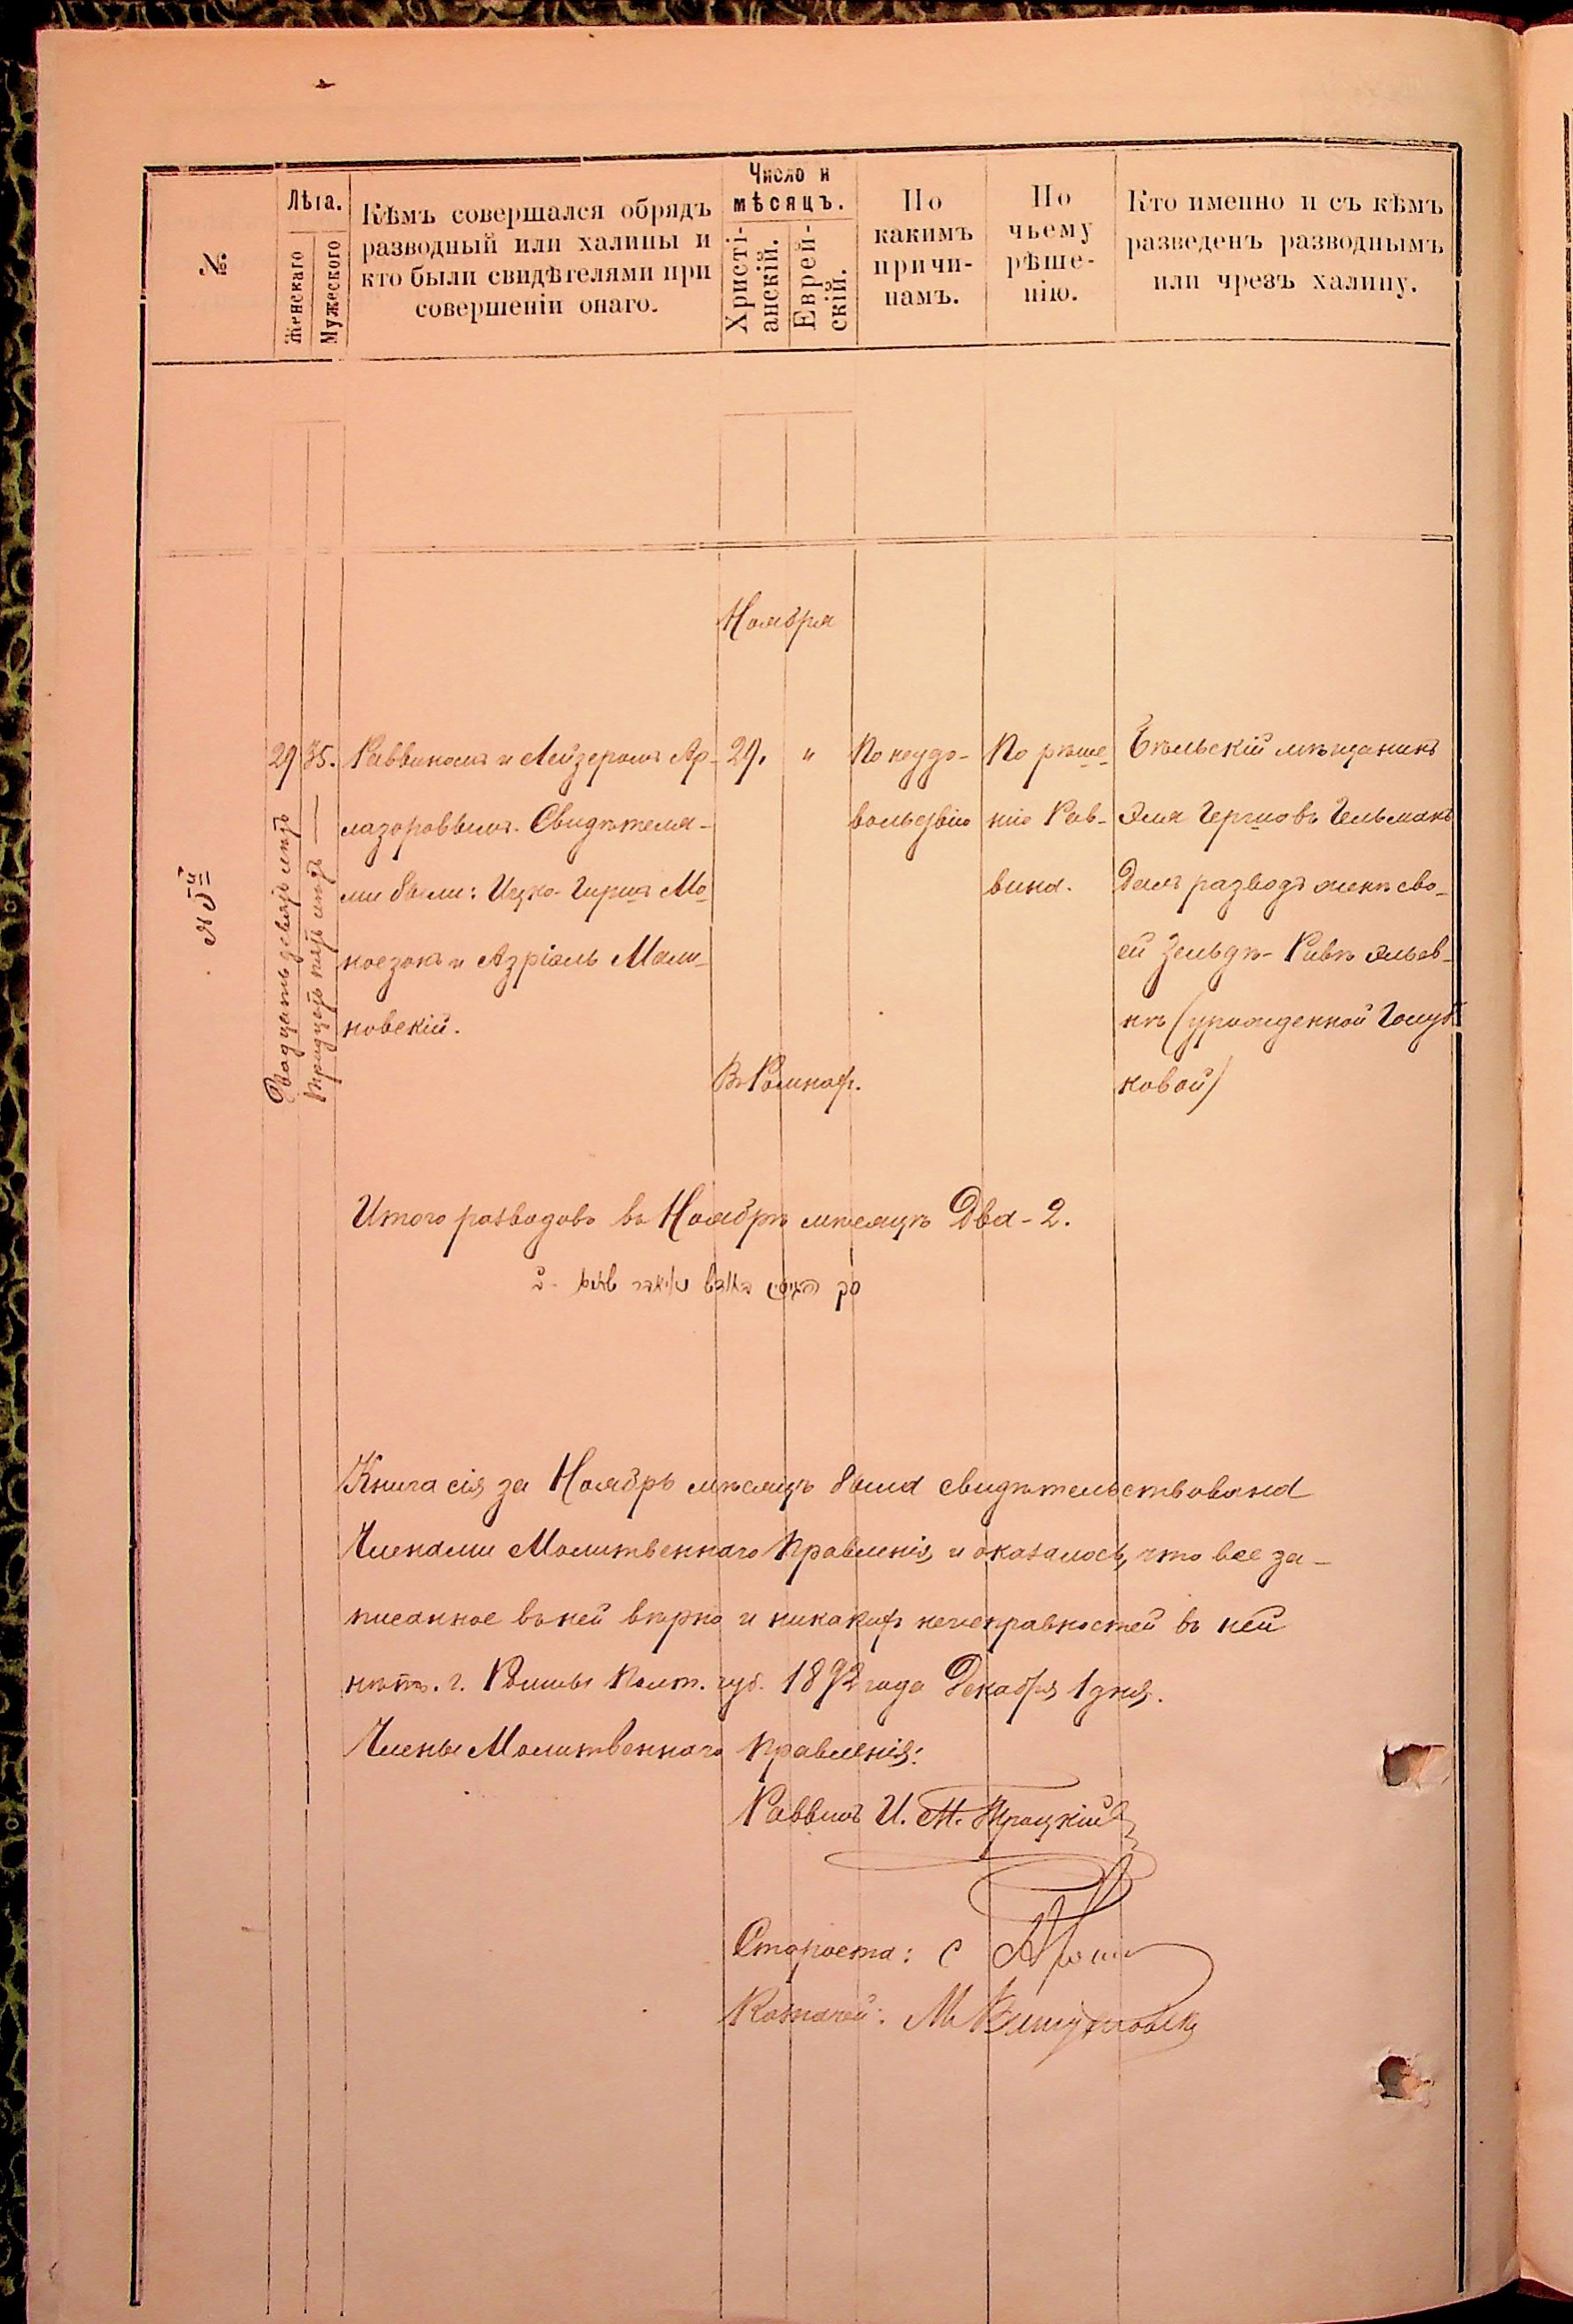 №
Лѣта.
Женскаго
Мужескаго
Кѣмъ совершался обрядъ
разводный или халицы и
кто были свидѣтелями при
совершеніи онаго.
Число и
мѣсяцъ.
Христі-
анскій.
Еврей-
скій.
По
какимъ
причи-
намъ.
По
чьему
рѣше-
нію.
Кто именно и съ кѣмъ
разведенъ разводнымъ
или чрезъ халицу.
Ноября
29
Двадцать девять лѣтъ
35.
Тридцать пять лѣтъ
Раввиномъ и Лейзеромъ
Свидѣтеля-
ми были: Ицко-Гиршъ Мо-
и Азріэль Мали-
новскій.
29. "
Въ Ромнахъ.
По неудо-
вольствію
По рѣше-
нію Рав-
вина.
мѣщанинъ
Эля Гершовъ Гельманъ
Далъ разводъ женѣ сво-
ей Зельдѣ-Ривѣ Эльев-
нѣ (урожденной Голуб-
ковой)
Итого разводовъ въ Ноябрѣ мѣсяцѣ Два - 2.
סך הגיטין
Книга сія за Ноябрь мѣсяцъ была свидѣтельствована
Членами Молитвеннаго Правленія, и оказалось, что все за-
писанное въ ней вѣрно и никакихъ неисправностей въ ней
нѣтъ. г. Ромны Полт. губ. 1892 года Декабря 1 дня.
Члены Молитвеннаго Правленія:
Раввинъ И. М. Троцкій
Староста: С
Казначей: М